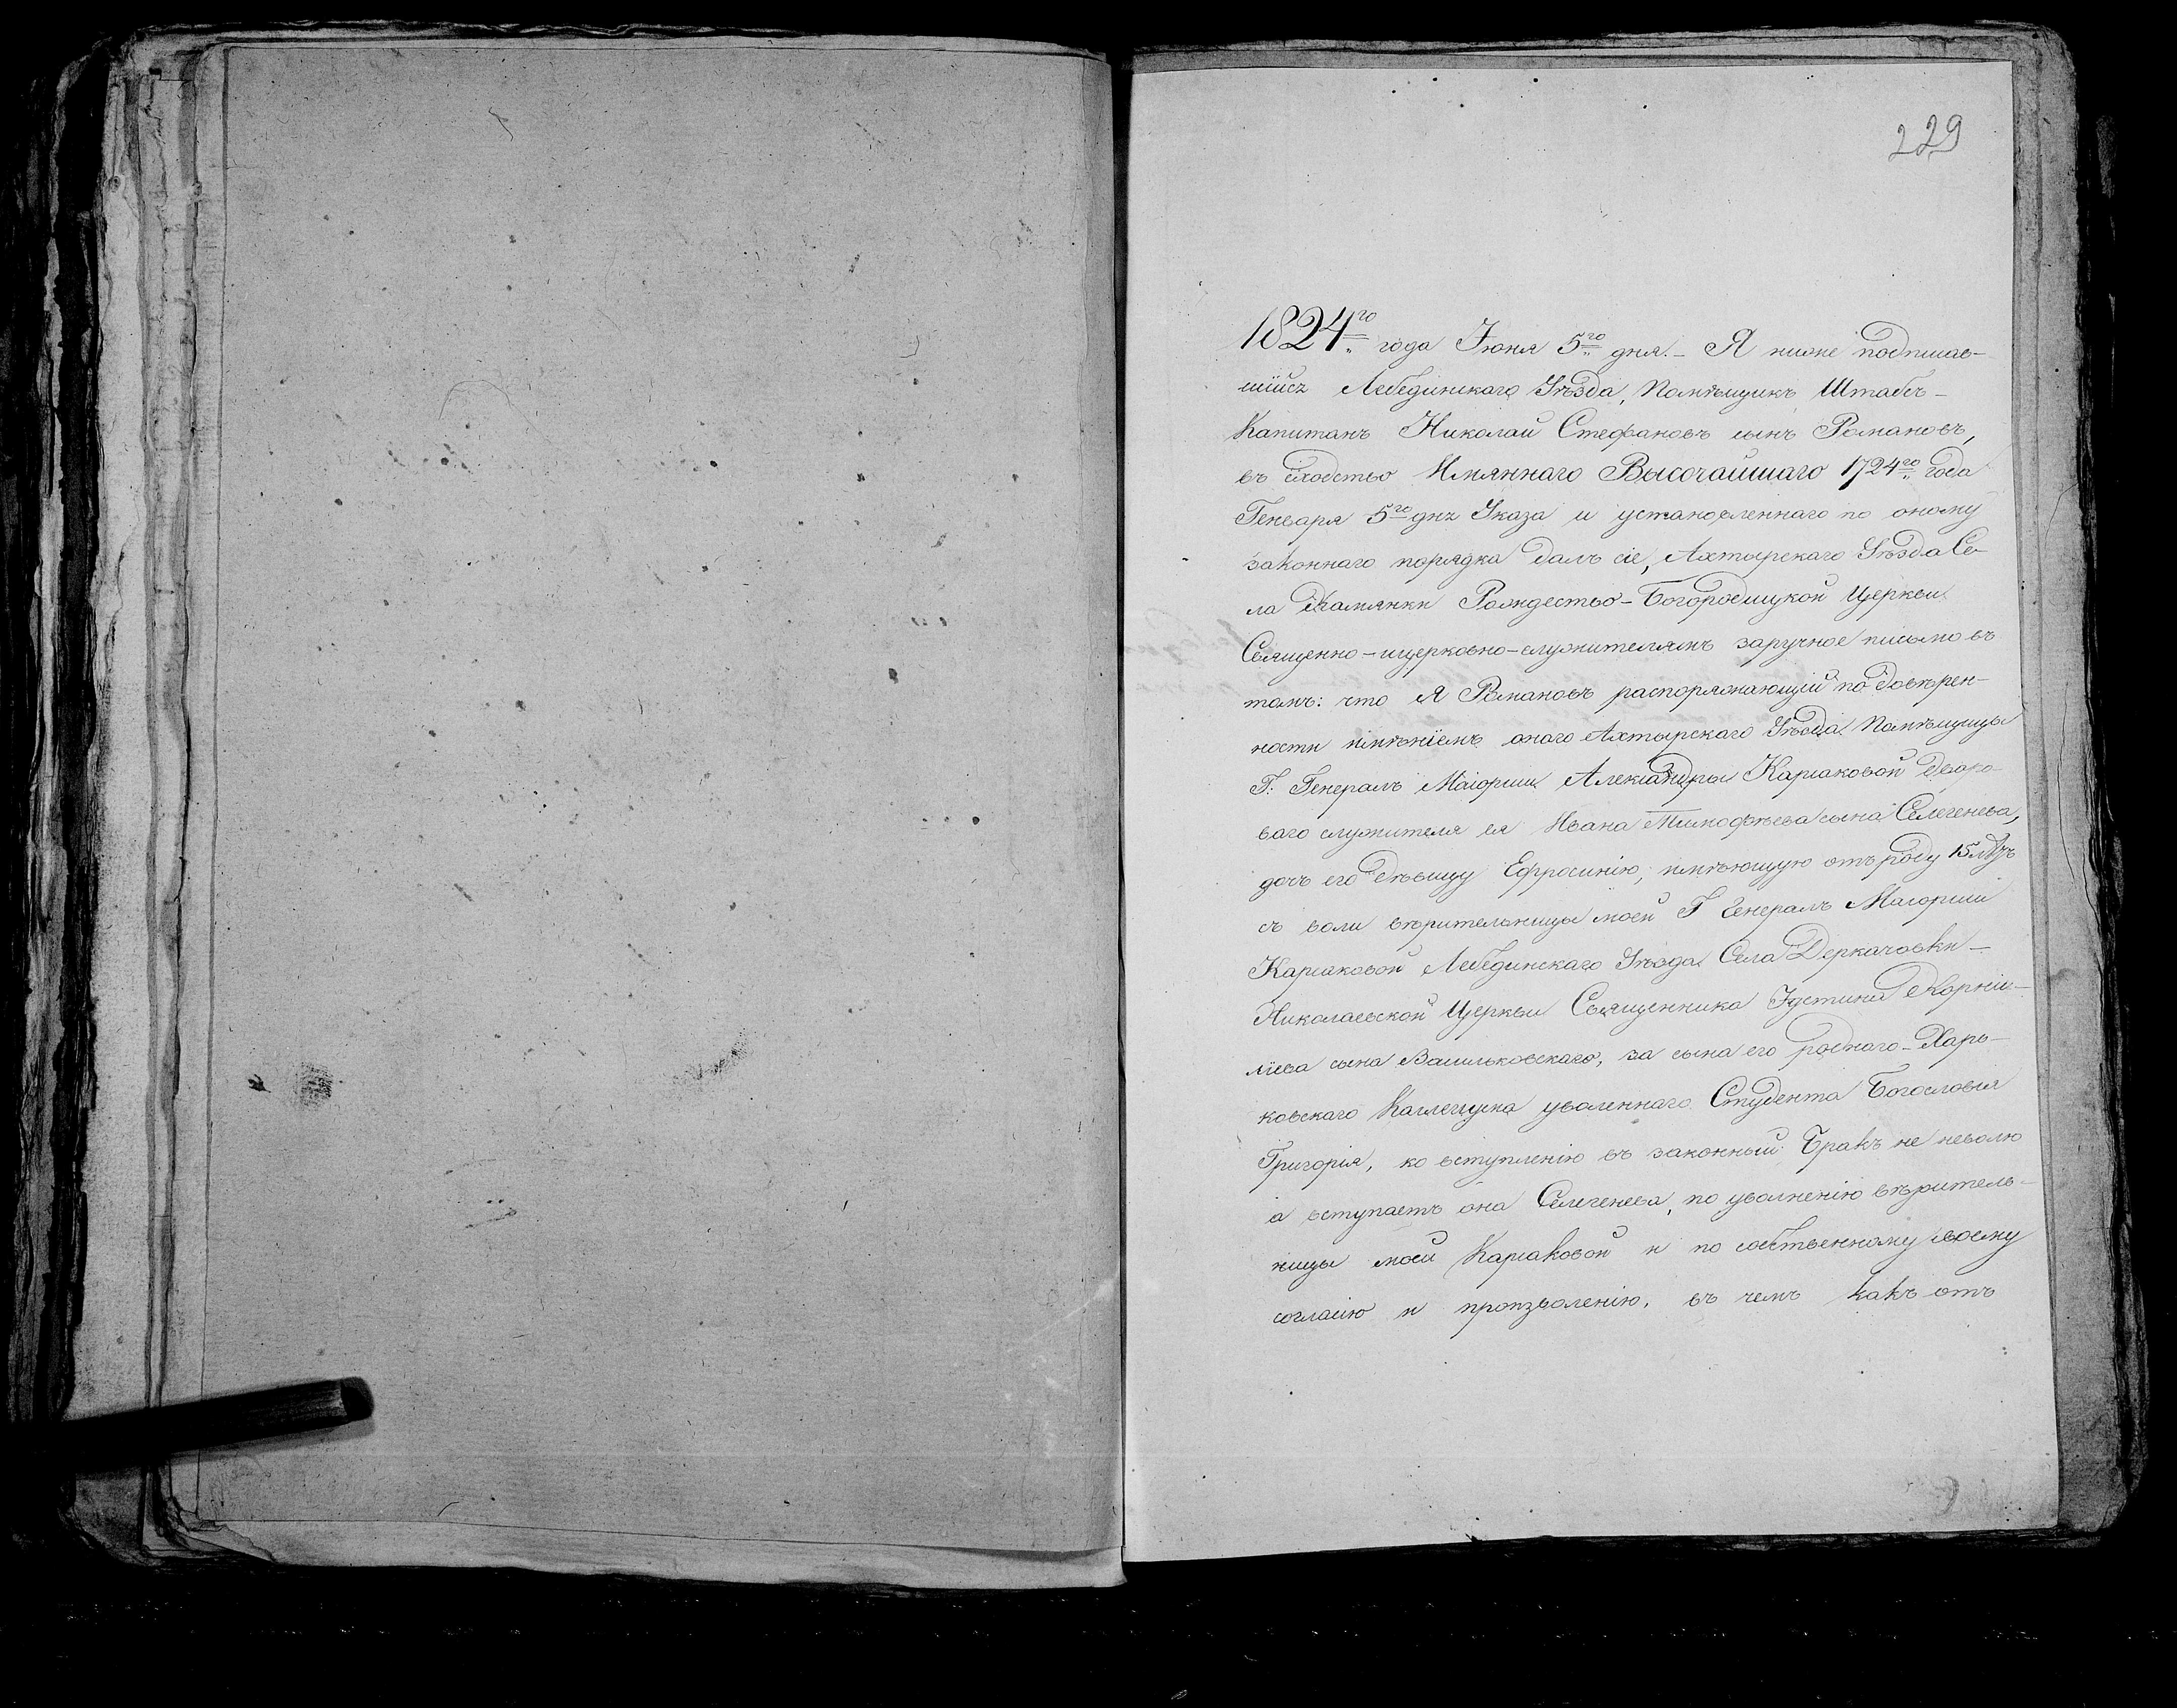 229
1824го года Іюня 5го дня. - Я ниже подписав-
шийся Лебединскаго Уѣзда, Помѣщикъ Штабъ-
Капитанъ Николай Стефановъ сынъ Романовъ,
въ сходство Имяннаго Высочайшаго 1724го года
Генваря 5го дня Указа и установленнаго по оному
законнаго порядка далъ сіе, Ахтырскаго Уѣзда Се-
ла Камянки Рождество-Богородицкой Церкви
Священно-ицерковно-служителямъ заручное письмо въ
томъ: что я Романовъ распоряжающій по довѣрен-
ности имѣніемъ онаго Ахтырскаго Уѣзда Помѣщицы
Г: Генералъ Маіорши Александры Карсаковой дворо-
ваго служителя ея Ивана Тимофѣева сына Селегенева,
дочь его дѣвицу Ефросинію, имѣющую отъ роду 15 лѣтъ
съ воли вѣрительницы моей Г Генералъ Маіорши
Карсаковой Лебединскаго Уѣзда Села Деркачовки -
Николаевской Церкви Священника Іустина Корни-
ліева сына Васильковскаго, за сына его роднаго - Харь-
ковскаго Каллегіума уволеннаго Студента Богословія
Григорія, ко вступленію въ законный бракъ не неволю
а вступаетъ она Селегенева, по уволненію вѣритель-
ницы моей Карсаковой и по собственному своему
согласію и произволенію, въ чемъ какъ отъ